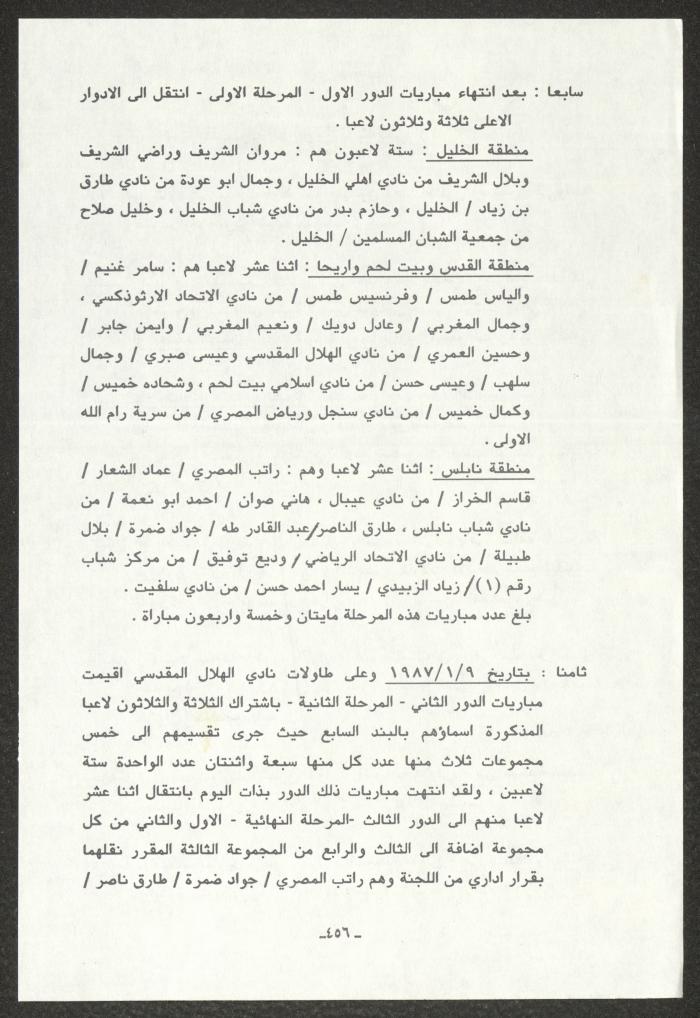 سابعا : بعد انتهاء مباريات الدور الاول - المرحلة الاولى - انتقل الى الادوار
الاعلى ثلاثة وثلاثون لاعبا .
منطقة الخليل : ستة لاعبون هم : مروان الشريف وراضي الشريف
وبلال الشريف من نادي اهلي الخليل ، وجمال ابو عودة من نادي طارق
بن زياد / الخليل ، وحازم بدر من نادي شباب الخليل ، وخليل صلاح
من جمعية الشبان المسلمين / الخليل .
منطقة القدس وبيت لحم واريحا : اثنا عشر لاعبا هم : سامر غنيم /
والياس طمس / وفرنسيس طمس / من نادي الاتحاد الارثوذكسي ،
وجمال المغربي / وعادل دويك / ونعيم المغربي / وايمن جابر /
وحسين العمري / من نادي الهلال المقدسي وعيسى صبري / وجمال
سلهب / وعيسى حسن / من نادي اسلامي بيت لحم ، وشحاده خميس /
وكمال خميس / من نادي سنجل ورياض المصري / من سرية رام الله
الاولى .
منطقة نابلس : اثنا عشر لاعبا وهم : راتب المصري / عماد الشعار /
قاسم الخراز / من نادي عيبال ، هاني صوان / احمد ابو نعمة / من
نادي شباب نابلس ، طارق الناصر/عبد القادر طه / جواد ضمرة / بلال
طبيلة / من نادي الاتحاد الرياضي / وديع توفيق / من مركز شباب
رقم (١)/ زياد الزبيدي / يسار احمد حسن / من نادي سلفيت .
بلغ عدد مباريات هذه المرحلة مايتان وخمسة واربعون مباراة .
ثامنا : بتاريخ ١٩٨٧/١/٩ وعلى طاولات نادي الهلال المقدسي اقيمت
مباريات الدور الثاني - المرحلة الثانية - باشتراك الثلاثة والثلاثون لاعبا
المذكورة اسماؤهم بالبند السابع حيث جرى تقسيمهم الى خمس
مجموعات ثلاث منها عدد كل منها سبعة واثنتان عدد الواحدة ستة
لاعبين ، ولقد انتهت مباريات ذلك الدور بذات اليوم بانتقال اثنا عشر
لاعبا منهم الى الدور الثالث -المرحلة النهائية - الاول والثاني من كل
مجموعة اضافة الى الثالث والرابع من المجموعة الثالثة المقرر نقلهما
بقرار اداري من اللجنة وهم راتب المصري / جواد ضمرة / طارق ناصر /
ـ ٤٥٦ـ